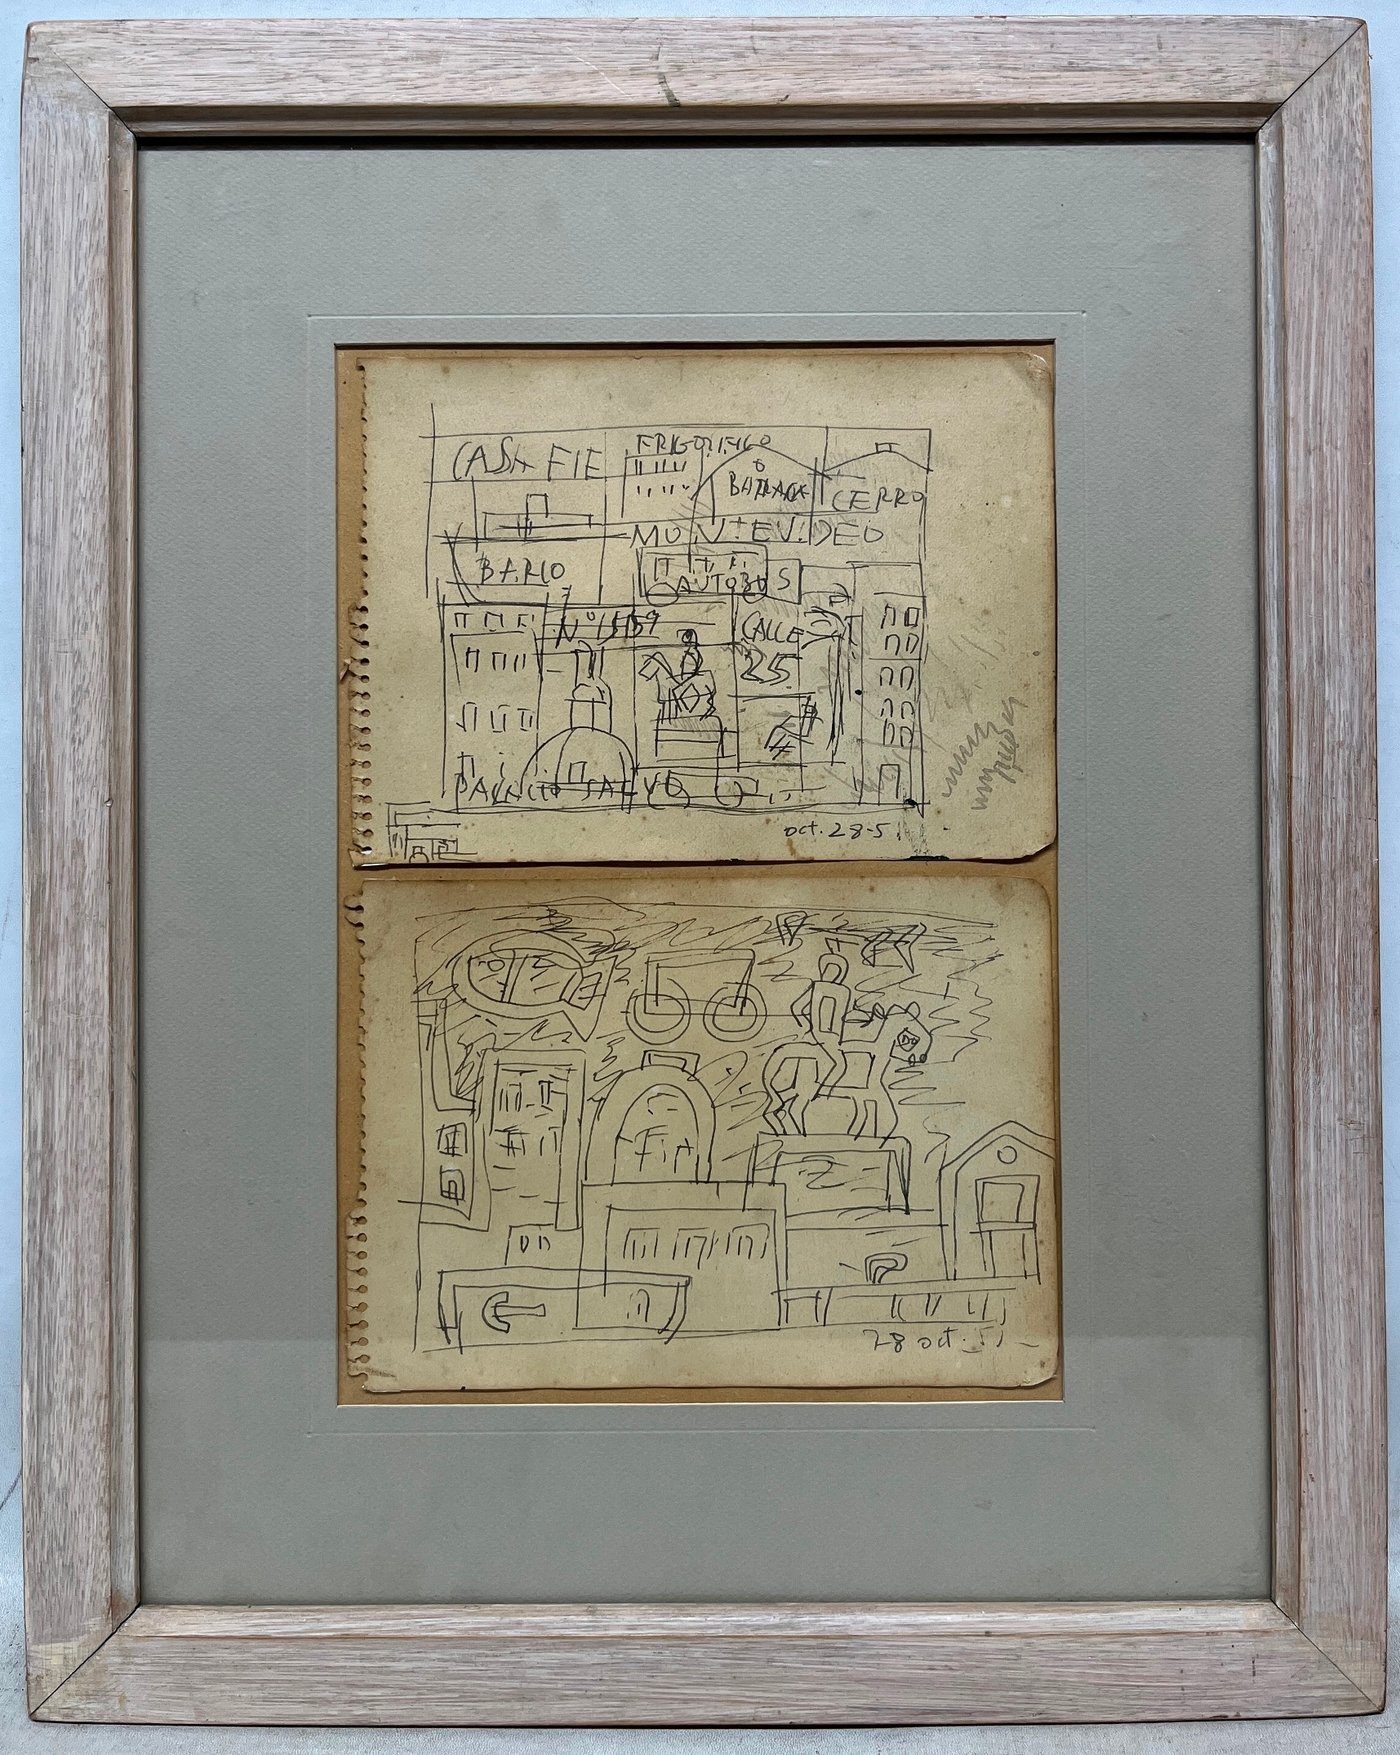 CASA FIE
FRIGORIFICO
BARRACA
CERRO
MONTEVIDEO
BARIO
AUTOBUS
CALLE
25
PALACIO SALVO
oct. 28-51
28 oct. 51